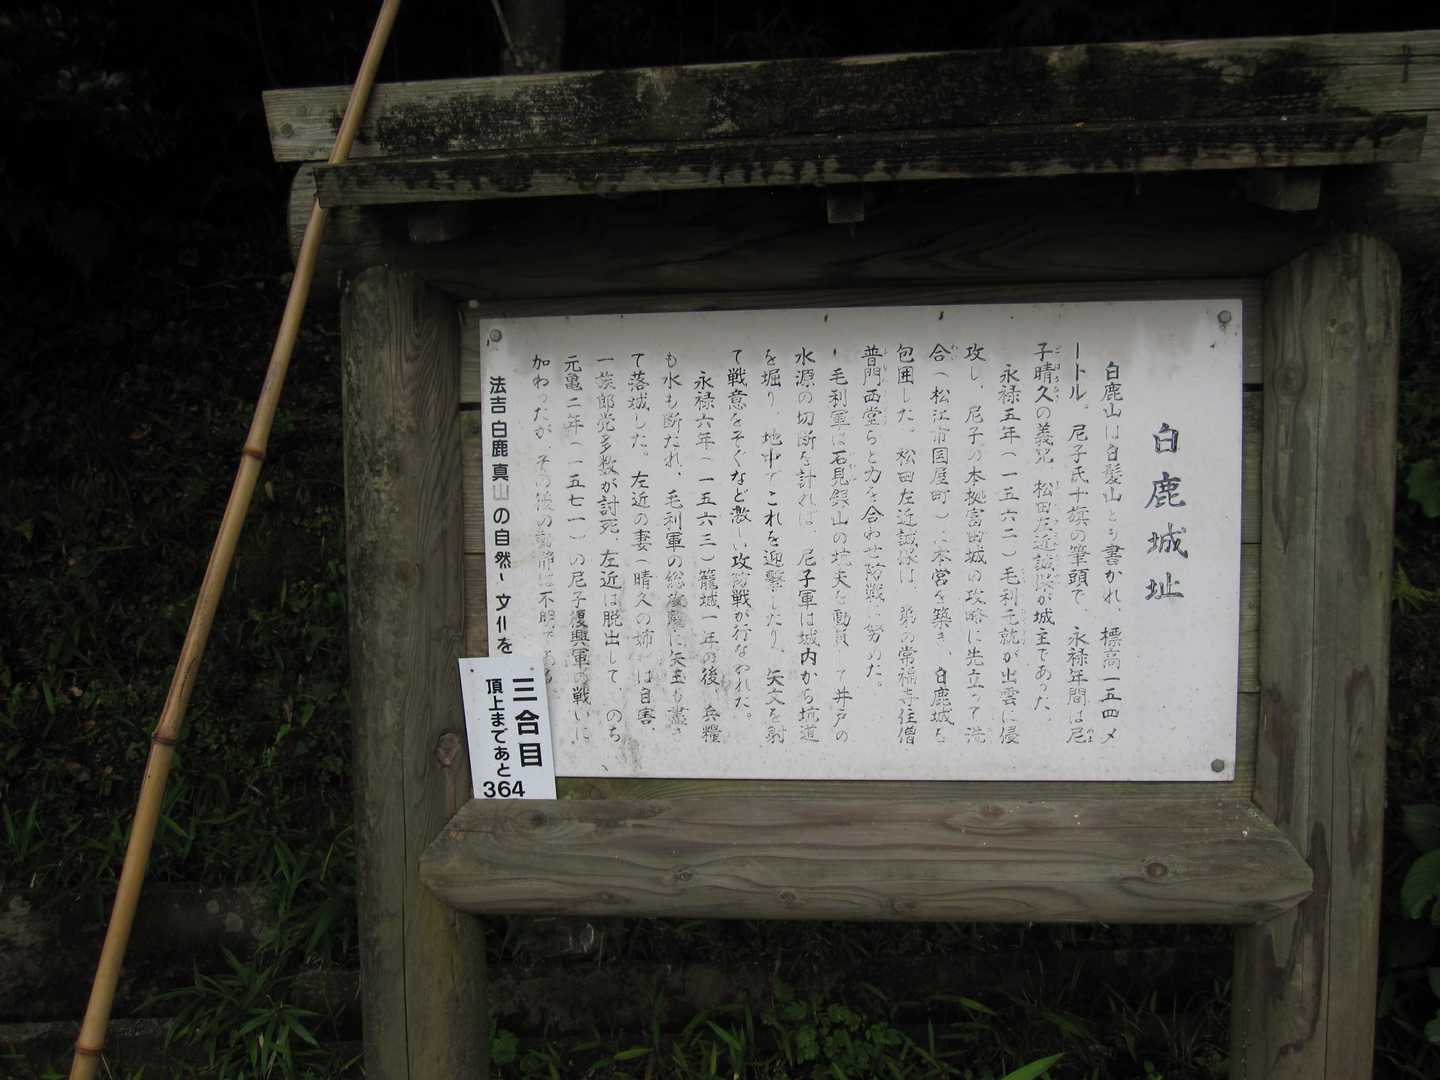 白鹿城址
白鹿山は白髪山とも書かれ、標高一五四メ
ートル。尼子氏十旗の筆頭で、永禄年間は尼
子晴久の義兄 松田左近誠保が城主であった。
永禄五年(一五六二)毛利元就が出雲に侵
攻し、尼子の本拠富田城の攻略に先立って洗
合(松江市国屋町)に本営を築き、白鹿城を
包囲した。松田左近誠保は、弟の常福寺住僧
普門西堂らと力を合わせ防戦に努めた。
毛利軍は石見銀山の坑夫を動員して井戸の
水源の切断を計れば、尼子軍は城内から坑道
を堀り、地中でこれを迎撃したり、矢文を射
て戦意をそぐなど激しい攻防戦が行なわれた。
永禄六年(一五六三)籠城一年の後、兵糧
も水も断たれ、毛利軍の総攻撃に矢玉も盡き
て落城した。左近の妻(晴久の姉)は自害、
一族郎党多数が討死、左近は脱出して、のち
元亀二年(一五七一)の尼子復興軍の戦いに
加わったが、その後の動静は不明である。
法吉 白鹿 真山 の自然・文化を
三合目
頂上まであと
364